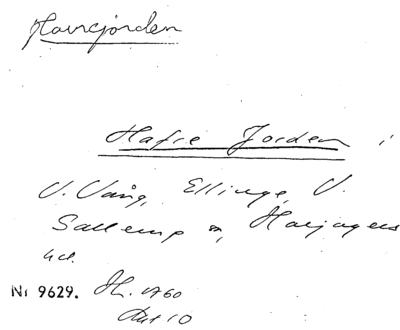 Havrejorden
Hafre Jorden i
V. Vång, Ellinge, V.
Sallerup sn, Harjagers
hd.
Nr 9629. Jb. 1760
Akt 10